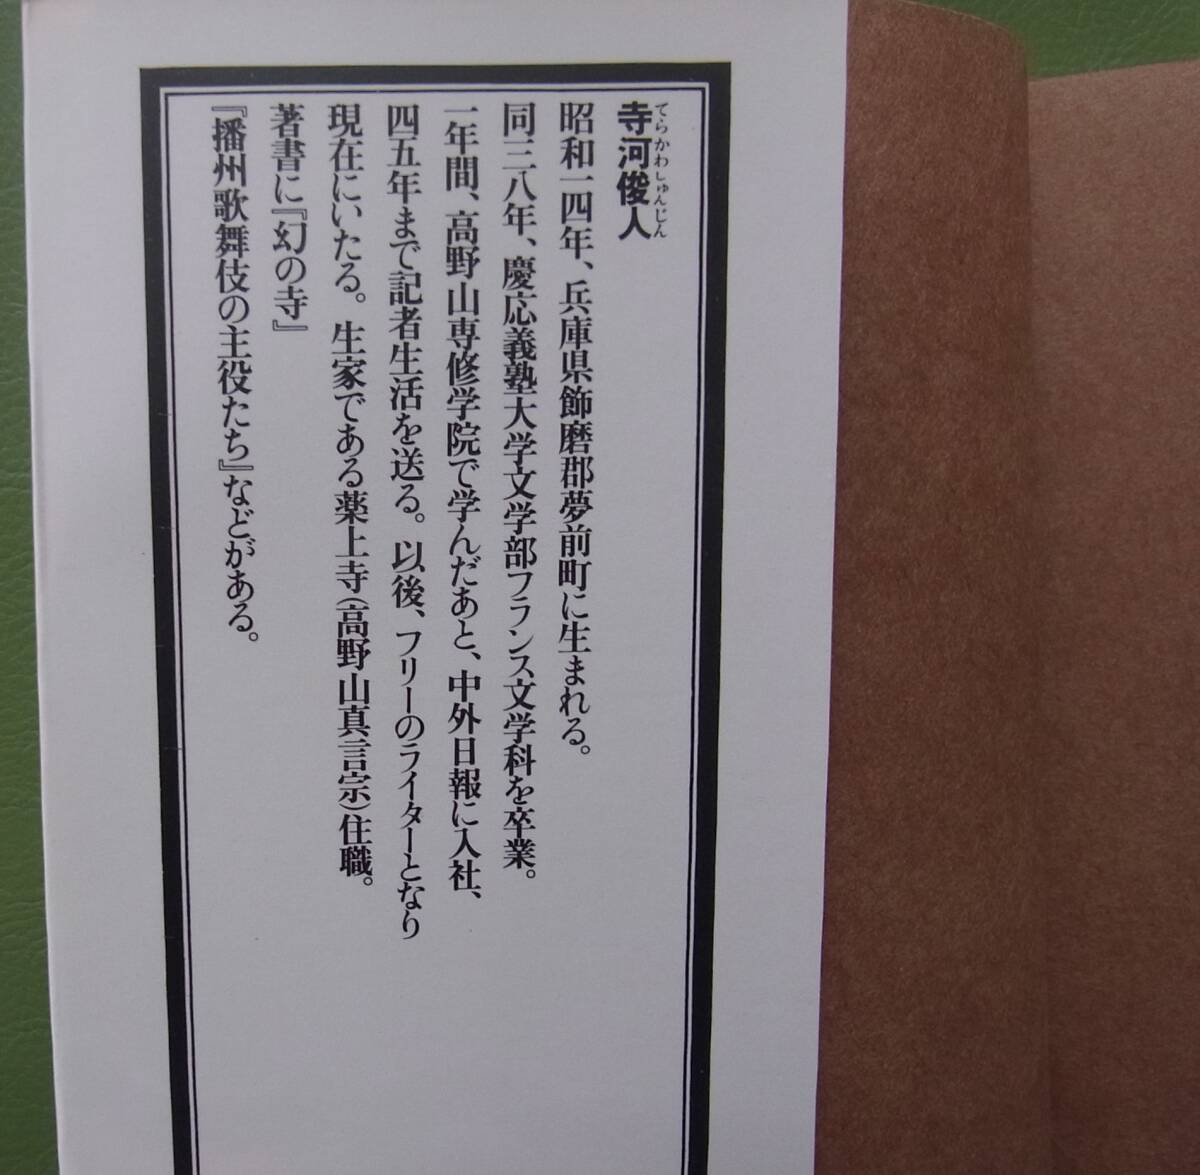 寺河俊人
てらかわしゅんじん
昭和一四年、兵庫県飾磨郡夢前町に生まれる。
同三八年、慶応義塾大学文学部フランス文学科を卒業。
一年間、高野山専修学院で学んだあと、中外日報に入社、
四五年まで記者生活を送る。以後、フリーのライターとなり
現在にいたる。生家である薬上寺(高野山真言宗)住職。
著書に『幻の寺』
『播州歌舞伎の主役たち』などがある。